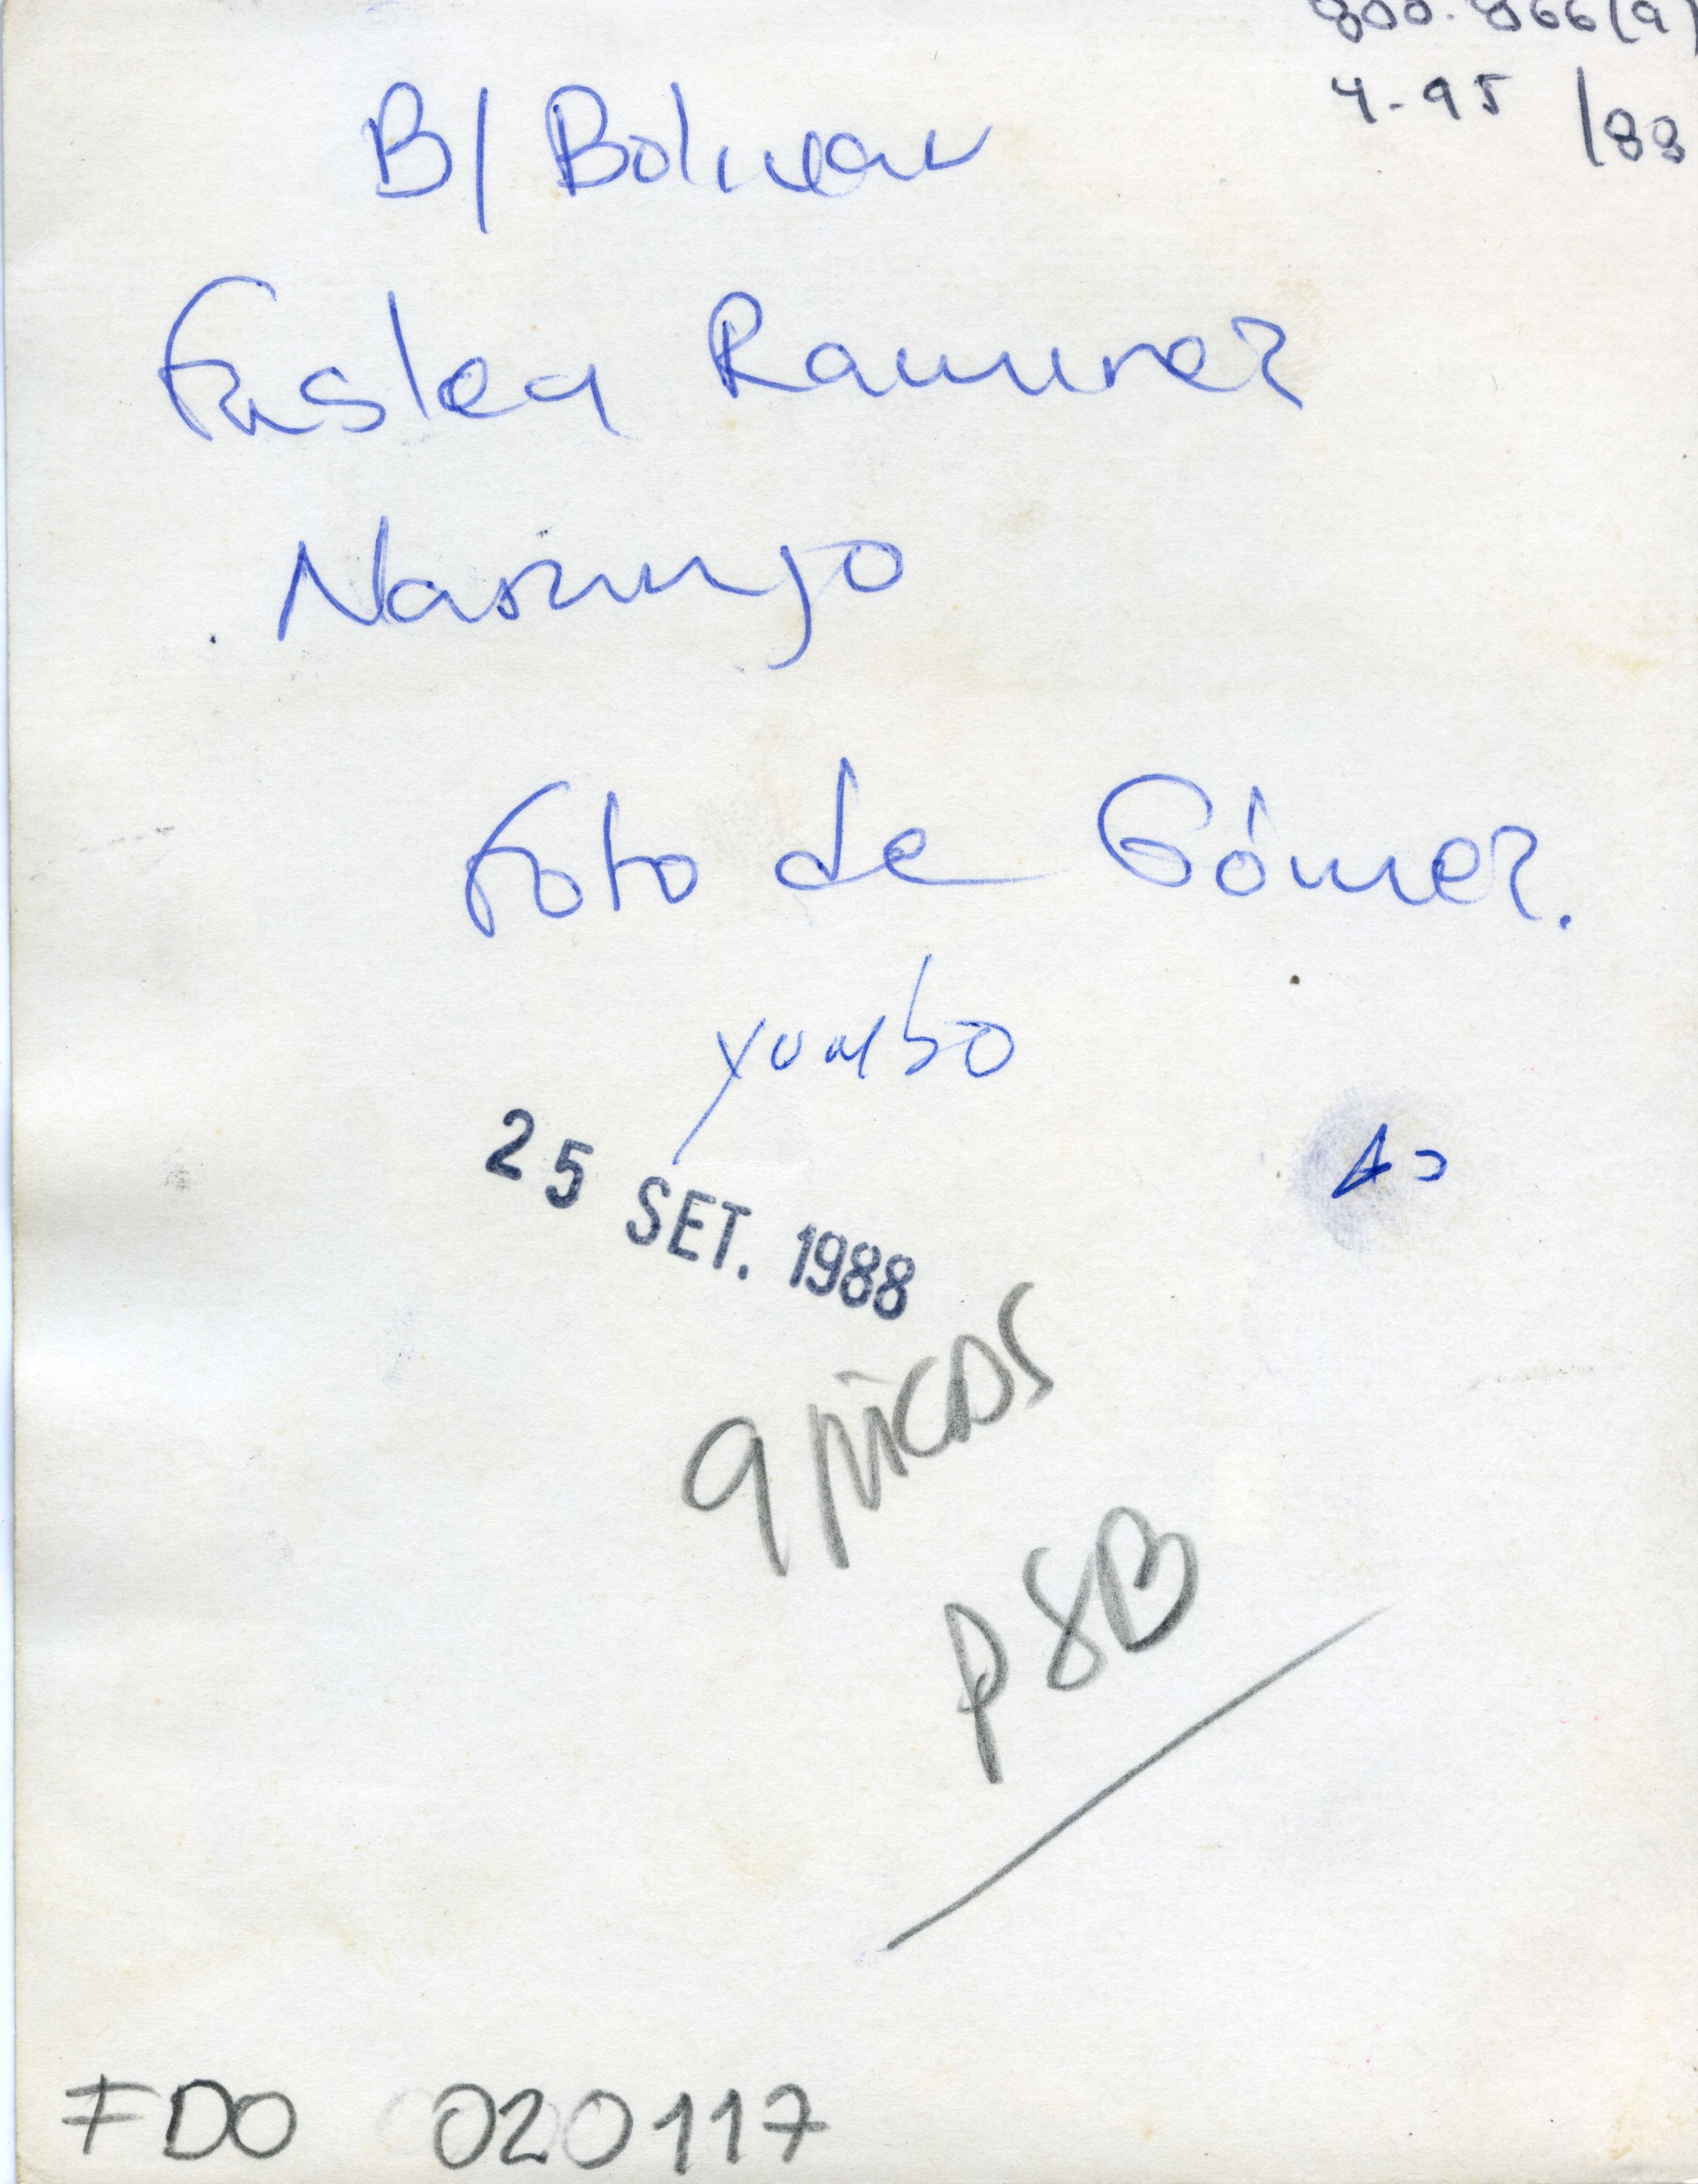 800.866(9)
4-95 /88
B/ Bolivar
Ramirez
Naranjo
Foto de Gómez.
yumbo
25 SET. 1988
9 picas
P8B
FDO 020117